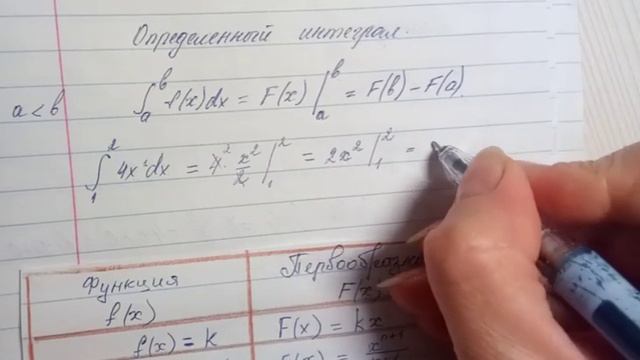 Определенный интеграл.
a < b
∫_a^b f(x)dx = F(x) |_a^b = F(b) – F(a)
∫_1^2 4x'dx = 4^2 · x^2/2 |_1^2 = 2x^2 |_1^2 =
Функция f(x)
Первообразн F(x)
f(x) = k
F(x) = kx
x^{n+1}